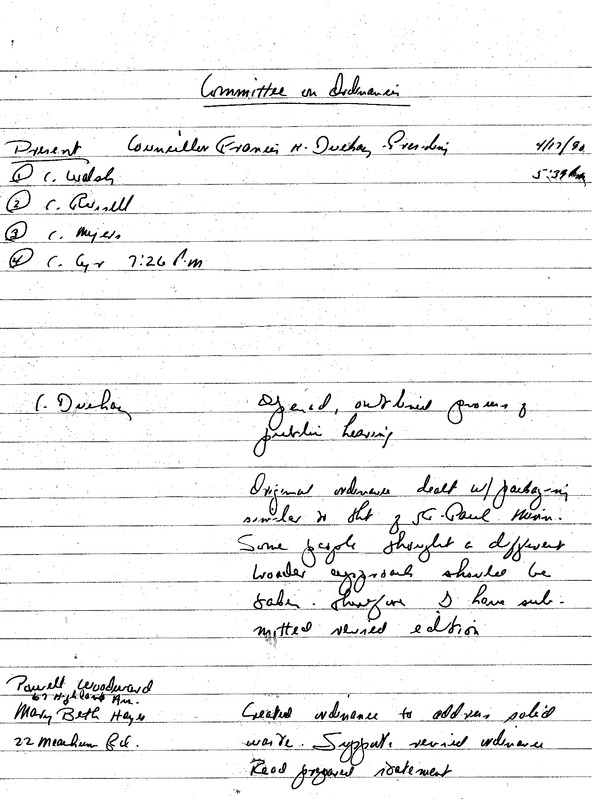 Committee on Ordinances
Present Councillor Francis H. Duehay - Presiding 4/17/90
① C. Walsh 5:39 P.M.
② C. Russell
③ C. Myers
④ C. Cyr 7:26 P.M
C. Duehay Opened, outlined process of
public hearing
Original ordinance dealt w/ packaging
similar to tht of St. Paul Minn.
Some people thought a different
broader approach should be
taken. Therefore I have sub-
mitted revised edition
Powell Woodward
67 Highland Av.
Mary Beth Hayes Created ordinance to address solid
22 Meacham Rd. waste. Supports revised ordinance
Read prepared statement